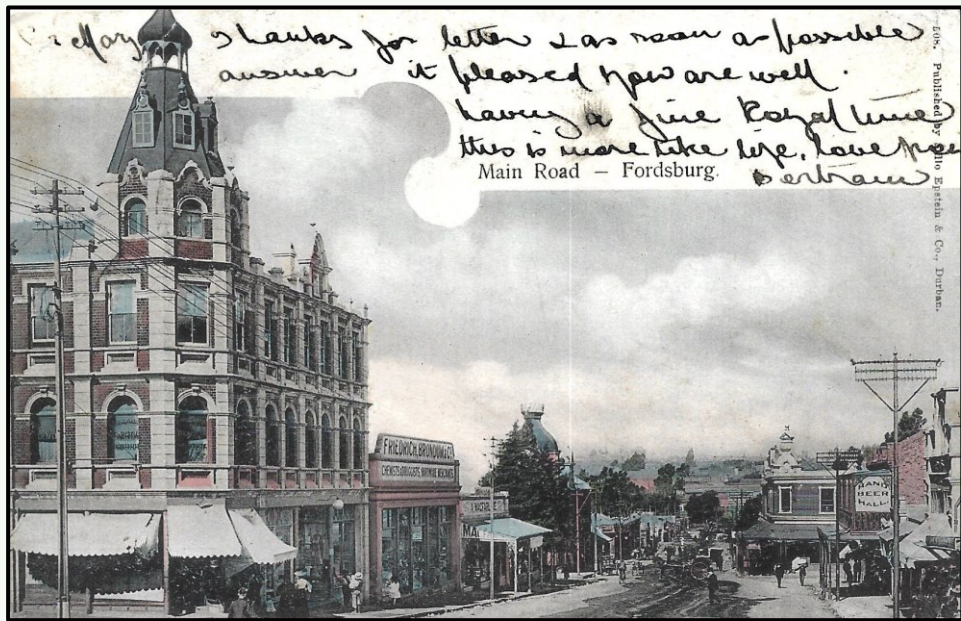 Mary, Thanks for letter & as soon as possible
answer it pleased you are well.
having a fine Royal time
this is more like life, love from
Bertram
Main Road – Fordsburg.
508. Published by Epstein & Co., Durban.
FRIEDRICH, BRONDUM & Co
CHEMISTS & DRUGGISTS,
RAND
BEER
HALL